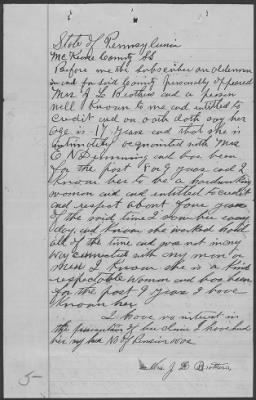 State of Pennsylvania
McKean County SS
Before me the subscriber an alderman
in and for said County personally appeared
Mrs J L Brothers and a person
well known to me and entitled to
credit and on oath doth say her
age is 17 years and that she is
intimately acquainted with Mrs
E N Dimming and has been
for the past 8 or 9 years and I
know her to be a
women and and entitled to credit
and respect about four years
of the said time I saw her every
day and know she worked hard
all of the time and was not in any
way connected with any man or
men I know she is a
respectable Woman and has been
for the past 9 years I have
known her
I have no interest in
the prosecution of her claim I have had
her my
Mrs. J L Brothers
5-